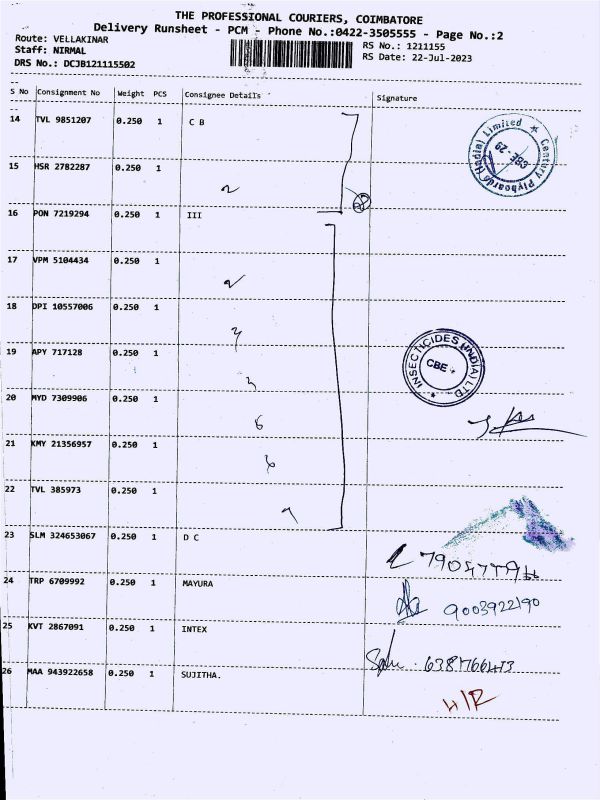 THE PROFESSIONAL COURIERS, COIMBATORE
Delivery Runsheet - PCM - Phone No.:0422-3505555 - Page No.:2
Route: VELLAKINAR
Staff: NIRMAL
DRS No.: DCJB121115502
RS No.: 1211155
RS Date: 22-Jul-2023
S No Consignment No Weight PCS Consignee Details Signature
14 TVL 9851207 0.250 1 C B
Century Plyboards (India) Limited ★
CBE - 29
15 HSR 2782287 0.250 1
16 PON 7219294 0.250 1 III
17 VPM 5104434 0.250 1
18 DPI 10557006 0.250 1
19 APY 717128 0.250 1
INSECTICIDES (INDIA) LTD ★
CBE
20 MYD 7309906 0.250 1
21 KMY 21356957 0.250 1
22 TVL 385973 0.250 1
23 SLM 324653067 0.250 1 D C
24 TRP 6709992 0.250 1 MAYURA
9003922190
25 KVT 2867091 0.250 1 INTEX
26 MAA 943922658 0.250 1 SUJITHA.